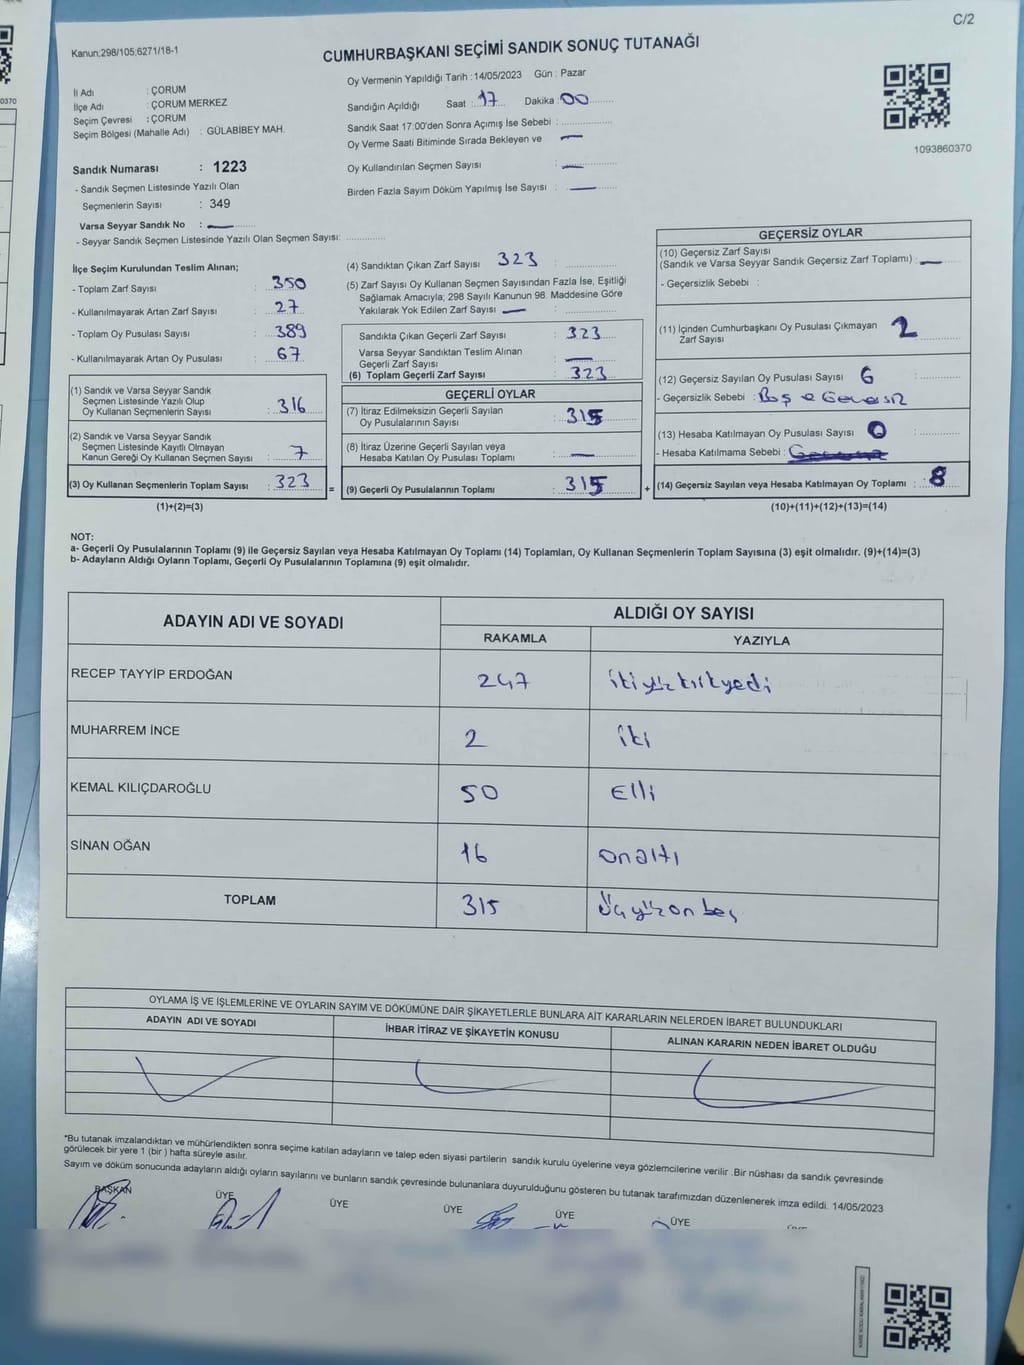 C/2
Kanun;298/105,6271/18-1
CUMHURBAŞKANI SEÇİMİ SANDIK SONUÇ TUTANAĞI
İl Adı : ÇORUM
İlçe Adı : ÇORUM MERKEZ
Seçim Çevresi : ÇORUM
Seçim Bölgesi (Mahalle Adı) : GÜLABİBEY MAH.
Sandık Numarası : 1223
- Sandık Seçmen Listesinde Yazılı Olan
Seçmenlerin Sayısı : 349
Varsa Seyyar Sandık No :
- Seyyar Sandık Seçmen Listesinde Yazılı Olan Seçmen Sayısı:
Oy Vermenin Yapıldığı Tarih :14/05/2023 Gün : Pazar
Sandığın Açıldığı Saat : 17 Dakika : 00
Sandık Saat 17:00'den Sonra Açımış İse Sebebi :
Oy Verme Saati Bitiminde Sırada Bekleyen ve
Oy Kullandırılan Seçmen Sayısı :
Birden Fazla Sayım Döküm Yapılmış İse Sayısı :
1093860370
İlçe Seçim Kurulundan Teslim Alınan;
- Toplam Zarf Sayısı : 350
- Kullanılmayarak Artan Zarf Sayısı : 27
- Toplam Oy Pusulası Sayısı : 389
- Kullanılmayarak Artan Oy Pusulası : 67
(1) Sandık ve Varsa Seyyar Sandık
Seçmen Listesinde Yazılı Olup
Oy Kullanan Seçmenlerin Sayısı : 316
(2) Sandık ve Varsa Seyyar Sandık
Seçmen Listesinde Kayıtlı Olmayan
Kanun Gereği Oy Kullanan Seçmen Sayısı : 7
(3) Oy Kullanan Seçmenlerin Toplam Sayısı : 323
(1)+(2)=(3)
(4) Sandıktan Çıkan Zarf Sayısı 323 :
(5) Zarf Sayısı Oy Kullanan Seçmen Sayısından Fazla İse, Eşitliği
Sağlamak Amacıyla; 298 Sayılı Kanunun 98. Maddesine Göre
Yakılarak Yok Edilen Zarf Sayısı :
Sandıkta Çıkan Geçerli Zarf Sayısı : 323
Varsa Seyyar Sandıktan Teslim Alınan
Geçerli Zarf Sayısı :
(6) Toplam Geçerli Zarf Sayısı : 323
GEÇERLİ OYLAR
(7) İtiraz Edilmeksizin Geçerli Sayılan
Oy Pusulalarının Sayısı : 315
(8) İtiraz Üzerine Geçerli Sayılan veya
Hesaba Katılan Oy Pusulası Toplamı :
= (9) Geçerli Oy Pusulalarının Toplamı : 315
GEÇERSİZ OYLAR
(10) Geçersiz Zarf Sayısı
(Sandık ve Varsa Seyyar Sandık Geçersiz Zarf Toplamı) :
- Geçersizlik Sebebi :
(11) İçinden Cumhurbaşkanı Oy Pusulası Çıkmayan
Zarf Sayısı 2
(12) Geçersiz Sayılan Oy Pusulası Sayısı 6 :
- Geçersizlik Sebebi : Boş
(13) Hesaba Katılmayan Oy Pusulası Sayısı 0 :
- Hesaba Katılmama Sebebi :
+ (14) Geçersiz Sayılan veya Hesaba Katılmayan Oy Toplamı : 8
(10)+(11)+(12)+(13)=(14)
NOT:
a- Geçerli Oy Pusulalarının Toplamı (9) ile Geçersiz Sayılan veya Hesaba Katılmayan Oy Toplamı (14) Toplamları, Oy Kullanan Seçmenlerin Toplam Sayısına (3) eşit olmalıdır. (9)+(14)=(3)
b- Adayların Aldığı Oyların Toplamı, Geçerli Oy Pusulalarının Toplamına (9) eşit olmalıdır.
ADAYIN ADI VE SOYADI
ALDIĞI OY SAYISI
RAKAMLA YAZIYLA
RECEP TAYYİP ERDOĞAN 247 ikiyüzkırkyedi
MUHARREM İNCE 2 iki
KEMAL KILIÇDAROĞLU 50 Elli
SİNAN OĞAN 16 onaltı
TOPLAM 315 Üçyüzonbeş
OYLAMA İŞ VE İŞLEMLERİNE VE OYLARIN SAYIM VE DÖKÜMÜNE DAİR ŞİKAYETLERLE BUNLARA AİT KARARLARIN NELERDEN İBARET BULUNDUKLARI
ADAYIN ADI VE SOYADI İHBAR İTİRAZ VE ŞİKAYETİN KONUSU ALINAN KARARIN NEDEN İBARET OLDUĞU
*Bu tutanak imzalandıktan ve mühürlendikten sonra seçime katılan adayların ve talep eden siyasi partilerin sandık kurulu üyelerine veya gözlemcilerine verilir .Bir nüshası da sandık çevresinde
görülecek bir yere 1 (bir ) hafta süreyle asılır.
Sayım ve döküm sonucunda adayların aldığı oyların sayılarını ve bunların sandık çevresinde bulunanlara duyurulduğunu gösteren bu tutanak tarafımızdan düzenlenerek imza edildi. 14/05/2023
BAŞKAN ÜYE ÜYE ÜYE ÜYE ÜYE